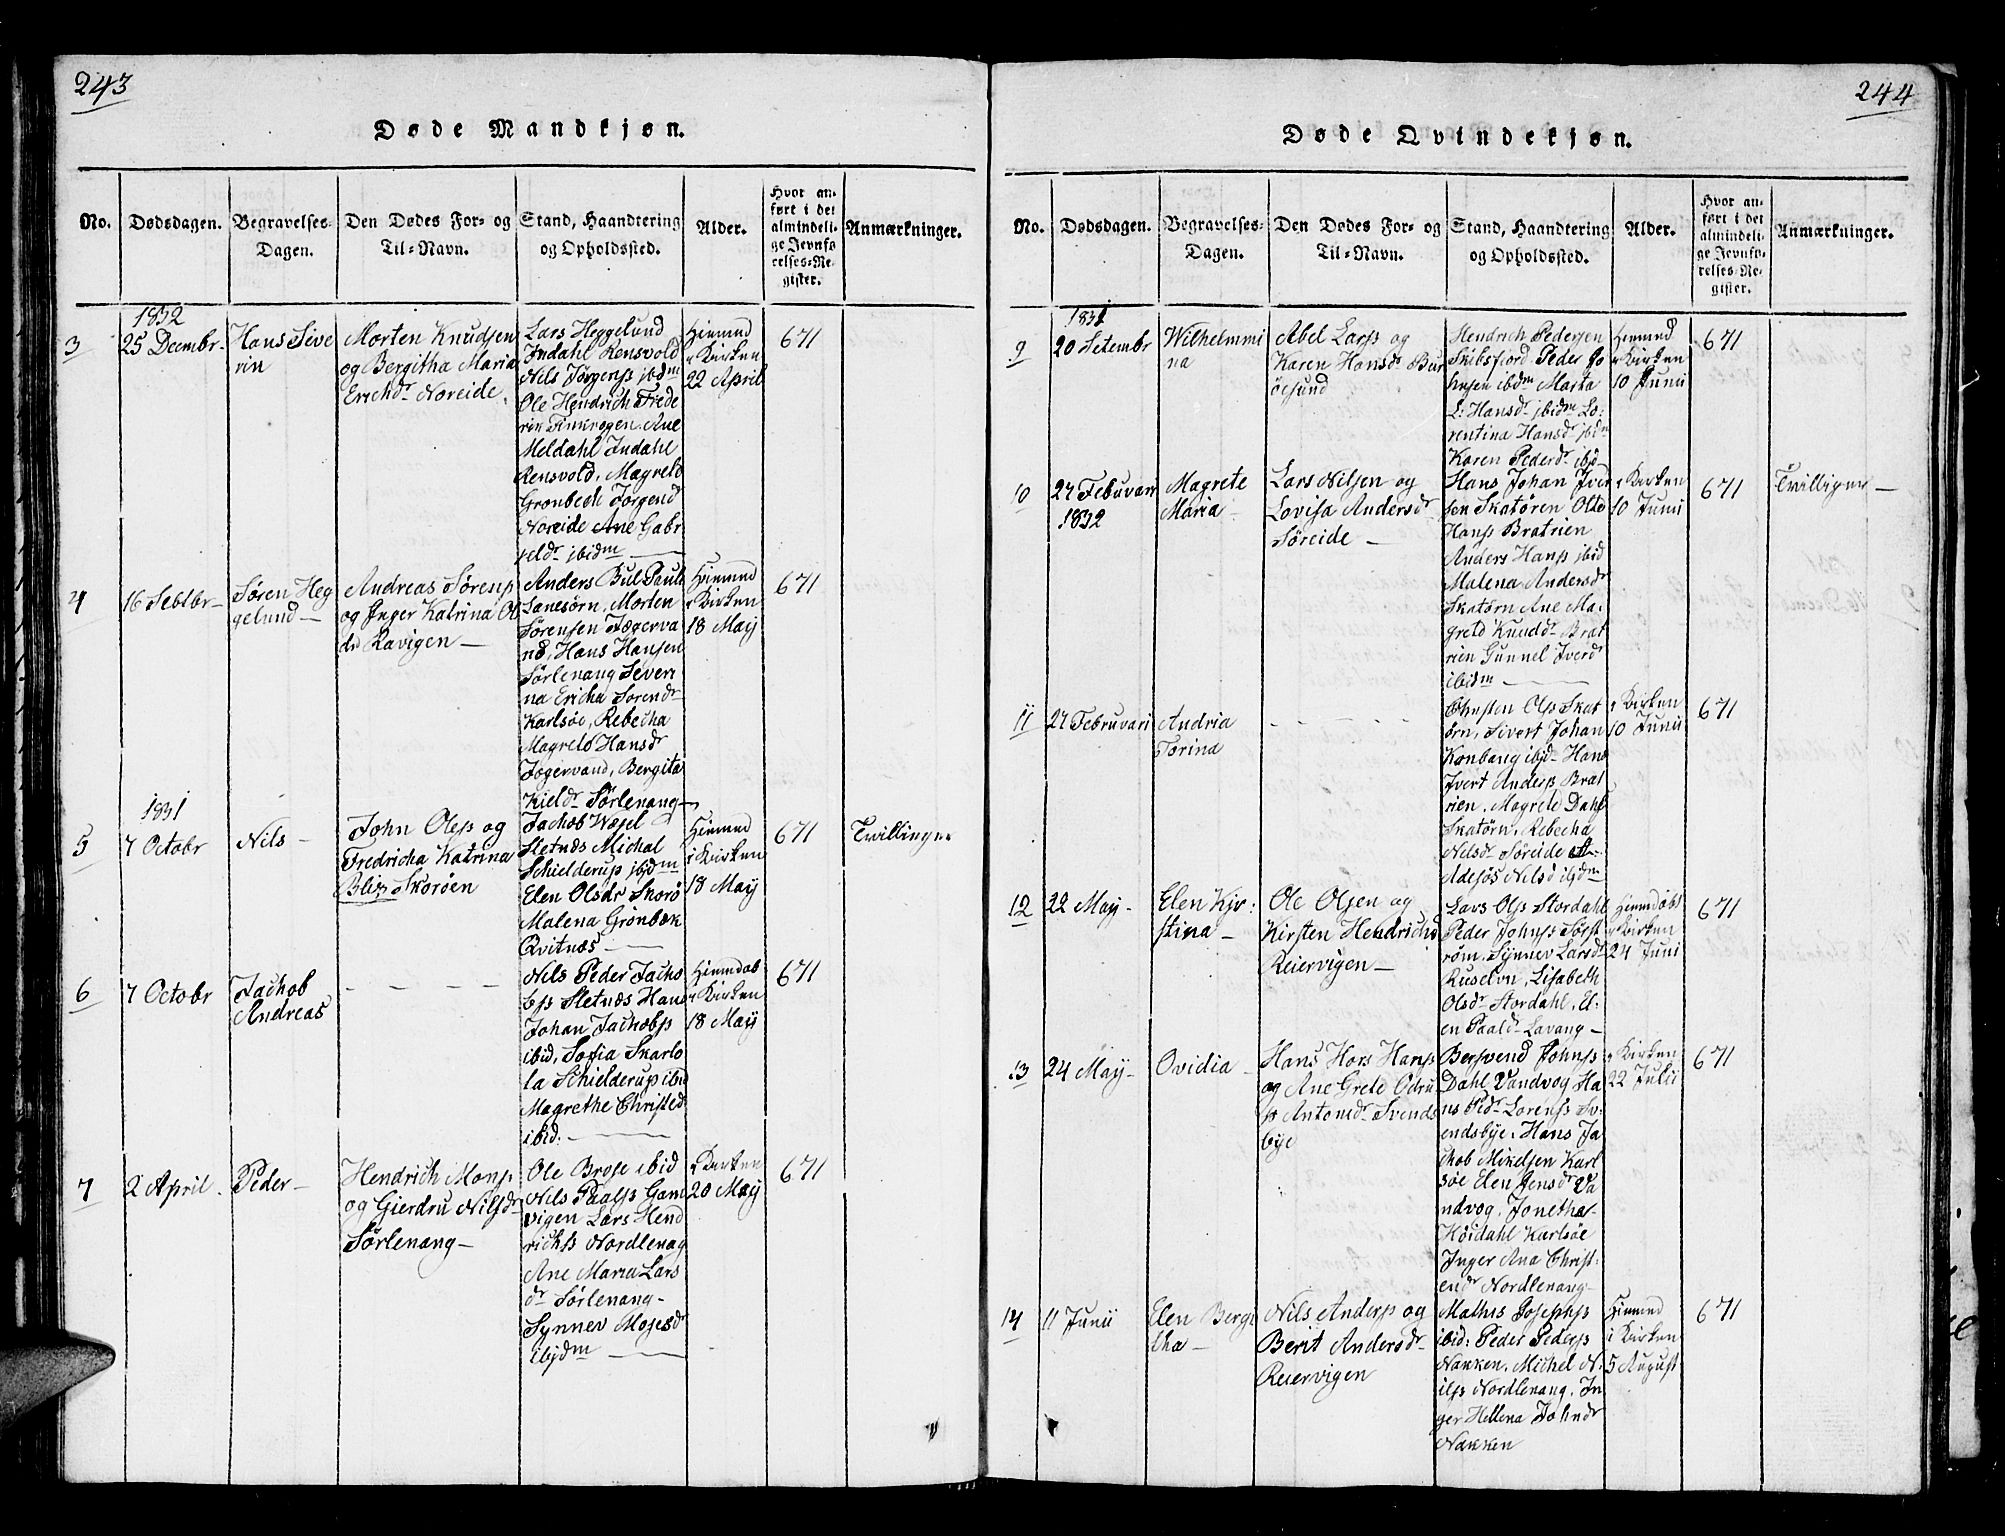 243
Døde Mandkjøn.
No.
Dødsdagen.
Begravelses-
Dagen.
Den Dødes For- og
Til-Navn.
Stand, Haandtering
og Opholdssted.
Alder.
Hvor an-
ført i det
almindeli-
ge Jevnfø-
relses-Re-
gister.
Anmærkninger.
3
1832
25 Decembr-
Hans Seve
rin
Morten Knudsen
og Bergitha Maria
Erichdr Noreide.
Lars Heggelund
Indahl Rensvold
Nils Jørgens jbidm
Ole Hendrich Frede
Ane
Meldahl Indahl
Rensvold, Magreta
Gronbech Jørgendr
Noreide Ane Gabr
ieldr jbidm
Hiemmd
i Kirken
22 April
671
4
16 Sebtbr-
Søren Heg
gelund-
Andreas Sørens
og Inger Katrina Ol
dr Ravigen-
Anders Bul Pauls
Lanesørn, Morten
Sørensen Jægerva
nd, Hans Hansen
Sørlenang Severi
na Ericha Sørendr
Karlsøe, Rebecha
Magreta Hansdr
Jægervand, Bergita
Kieldr Sørlenang-
Hiemmd
i Kirken
18 Maÿ
671
5
1831
7 Octobr
Nils-
John Olsen og
Fredricha Katrina
Blix Skorøen
Jachob Wæsel
Sletnæs Michal
Schielderup jbidm
Elen Olsdr Skorø
Malena Grønbæk
Qvitnæs-
Hiemmd
i Kirken
18 Maÿ
671
Tvillinger
6
7 Octobr
Jachob
Andreas
- - - -
Nils Peder Jacho
bs Sletnæs Hans
Johan Jachobs
ibid, Sofia Skarlo
ta Schielderup ibid
Magrethe Christed
ibid:-
Hiemdøb
i Kirken
18 Maÿ
671
7
2 April.
Peder-
Hendrich Mons
og Gierdru Nilsdr
Sørlenang-
Ole Brose ibid
Nils Paals Gam
vigen Lars Hend
richs Nordlenag
Ane Maria Lars
dr Sørlenang-
Synnev Mosesdr
ibijdm
i Kirken
20 Maÿ
671
244
Døde Qvindekjøn.
No.
Dødsdagen.
Begravelses-
Dagen.
Den Dødes For- og
Til-Navn.
Stand, Haandtering
og Opholdssted.
Alder.
Hvor an-
ført i det
almindeli-
ge Jevnfø-
relses-Re-
gister.
Anmærkninger.
9
1831
20 Setembr
Wilhelmmi
na
Abel Lars og
Karen Hansdr Bur
øesund
Hendrich Pedersen
Skibsfiord Peder Jo
hnsen ibidm Marta
L: Hansdr jbidm Lo:
rentina Hansdr jbdm
Karen Pederdr ibjd
Hiemmd
i Kirken
10 Junii
671
10
27 Febuvari
1832
Magrete
Maria-
Lars Nilsen og
Lovisa Andersdr
Søreide -
Hans Johan Iver
sen Skatøren Olde
Hans Bratrien
Anders Hans jbid
Malena Andersdr
Skatørn Ane Ma-
greta Knuddr Brat
rien Gunnel Iverdr
ibidm-
i Kirken
10 Junii
671
Tvilliger-
11
27 Februvari
Andria
Torina
- - - - -
Christen Ols Skat
ørn, Sivert Johan
Konbang ibjd- Hans
Ivert Anders Brat
rien, Magrete Dahl
Skatørn, Rebecha
Nilsdr Søreide
Adesjøs Nilsd ibjdm
i Kirken
10 Junii
671
12
22 Maÿ-
Elen Kir:
stina-
Ole Olsen og
Kirsten Hendrichs
Reiervigen-
Lars Ols Stordahl
Peder Johns Sørst
røm, Synnev Larsdr
Ruselvn, Lisabeth
Olsdr Stordahl, El:
en Paaldr Lavang-
Hiemmdøbt
i Kirken
24 Juni
671
13
24 Maÿ-
Ovidia-
Hans Hans
og Ane Greta Odru
p Antonidr Svends
bye
Bersvend Johns
Dahl, Vandvog Ha
ns Pedr Lorens Sv:
endsbye, Hans Ja
chob Mikelsen Karl
søe Elen Jensdr Va
ndvog, Jonetha
Høidahl Karlsøe
Inger Ana Christ:
endr Nordlenang-
i Kirken
22 Julii
671
14
11 Junii
Elen Bergi
tha-
Nils Anders og
Berit Andersdr-
Reiervigen
Mathis Josephs
ibid: Peder Peders
Nakken, Michel N.
ils Nordlenang, In
ger Hellena Johndr
Nakken
Hiemmd
i Kirken
5 August
671